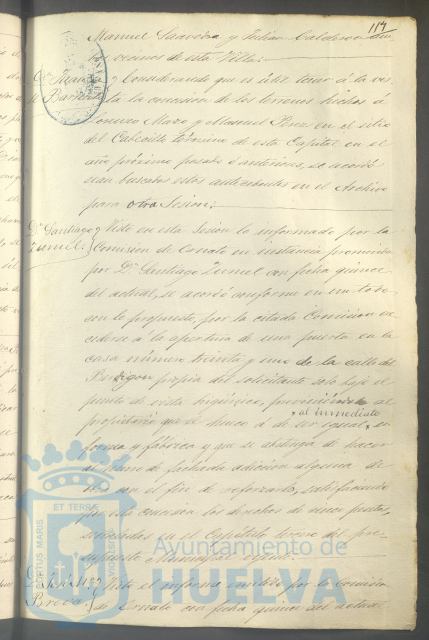 117
Manuel Saavedra y Julian Calderon am
bos vecinos de esta Villa.
Considerando que es util traer á la vis
ta la concesion de los terrenos hechos á
Lorenzo Mazo y Manuel Perez en el sitio
del Cabezillo término de esta Capital en el
año próximo pasado ó anteriores, se acordó
sean buscados estos antecedentes en el Archivo
para otra Sesion.
Dn Santiago
Zumel.
Visto en esta Sesion lo informado por la
Comision de Ornato en instancia promovida
por Dn Santiago Zumel con fecha quince
del actual, se acordó conforme en un todo
con lo propuesto por la citada Comision ac
cederse á la apertura de una puerta en la
casa número treinta y uno de la calle del
propia del solicitante solo bajo el
punto de vista higiénico, previniéndose al
propietario que el hueco á de ser igual al inmediato en
forma y fábrica y que se abstenga de hacer
al plano de fachada adicion alguna de
obra con el fin de reforzarla, satisfaciendo
por esta concesion los derechos de cinco pesetas,
señalados en el Capítulo tercero del pre
supuesto Municipal
Visto el informe emitido por la Comision
de Ornato con fecha quince del actual
PORTUS MARIS ET TERRAE CUSTODIA
Ayuntamiento de
HUELVA